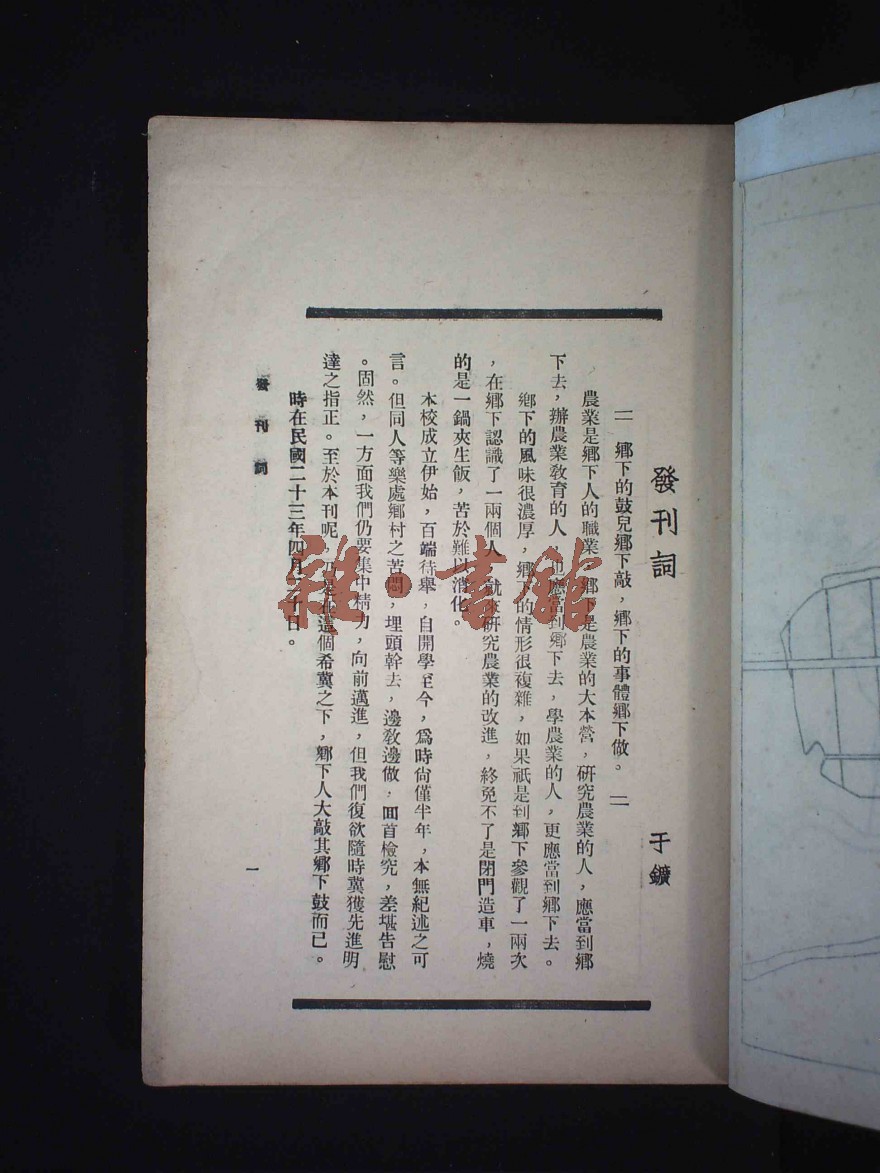 發刊詞
于鑛
＝鄉下的鼓兒鄉下敲，鄉下的事體鄉下做。＝
農業是鄉下人的職業，鄉下是農業的大本營，研究農業的人，應當到鄉
下去，辦農業教育的人，也應當到鄉下去，學農業的人，更應當到鄉下去。
鄉下的風味很濃厚，鄉下的情形很複雜，如果祇是到鄉下參觀了一兩次
，在鄉下認識了一兩個人，就來研究農業的改進，終免不了是閉門造車，燒
的是一鍋夾生飯，苦於難以消化。
本校成立伊始，百端待舉，自開學至今，爲時尙僅半年，本無紀述之可
言。但同人等樂處鄉村之苦悶，埋頭幹去，邊教邊做，回首檢究，差堪告慰
。固然，一方面我們仍要集中精力，向前邁進，但我們復欲隨時冀獲先進明
達之指正。至於本刊呢，乃是在這個希冀之下，鄉下人大敲其鄉下鼓而已。
時在民國二十三年四月十日。
發刊詞
一
雜·書館